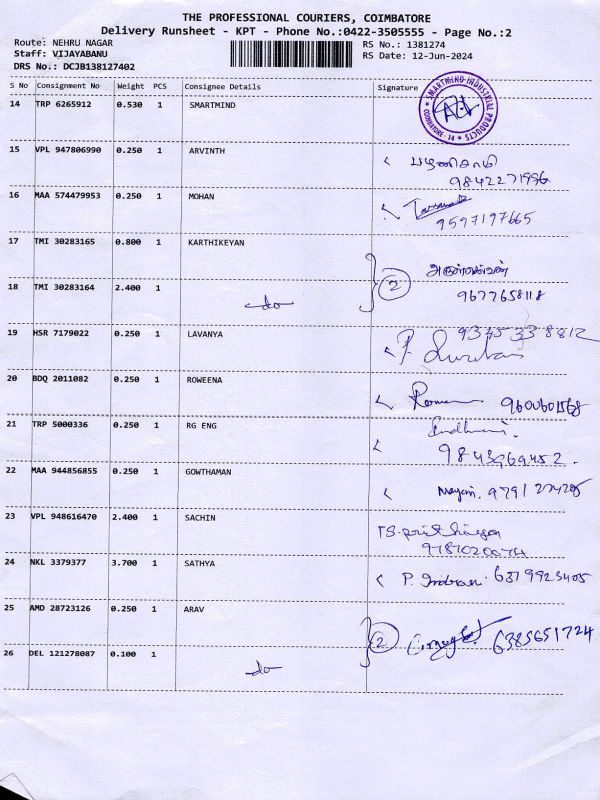 THE PROFESSIONAL COURIERS, COIMBATORE
Delivery Runsheet - KPT - Phone No.:0422-3505555 - Page No.:2
Route: NEHRU NAGAR RS No.: 1381274
Staff: VIJAYABANU RS Date: 12-Jun-2024
DRS No.: DCJB138127402
S No Consignment No Weight PCS Consignee Details Signature
14 TRP 6265912 0.530 1 SMARTMIND
SMARTMIND INDUSTRIAL PRODUCTS COIMBATORE - 14
15 VPL 947806990 0.250 1 ARVINTH
பழனிசாமி
9842271996
16 MAA 574479953 0.250 1 MOHAN
9597197665
17 TMI 30283165 0.800 1 KARTHIKEYAN
18 TMI 30283164 2.400 1 do 2
9677658118
19 HSR 7179022 0.250 1 LAVANYA
9345338812
20 BDQ 2011082 0.250 1 ROWEENA
9600601568
21 TRP 5000336 0.250 1 RG ENG
9843769452
22 MAA 944856855 0.250 1 GOWTHAMAN
9791274205
23 VPL 948616470 2.400 1 SACHIN
9787020074
24 NKL 3379377 3.700 1 SATHYA
P. Indrani 6379923405
25 AMD 28723126 0.250 1 ARAV
2 6385651724
26 DEL 121278087 0.100 1 do